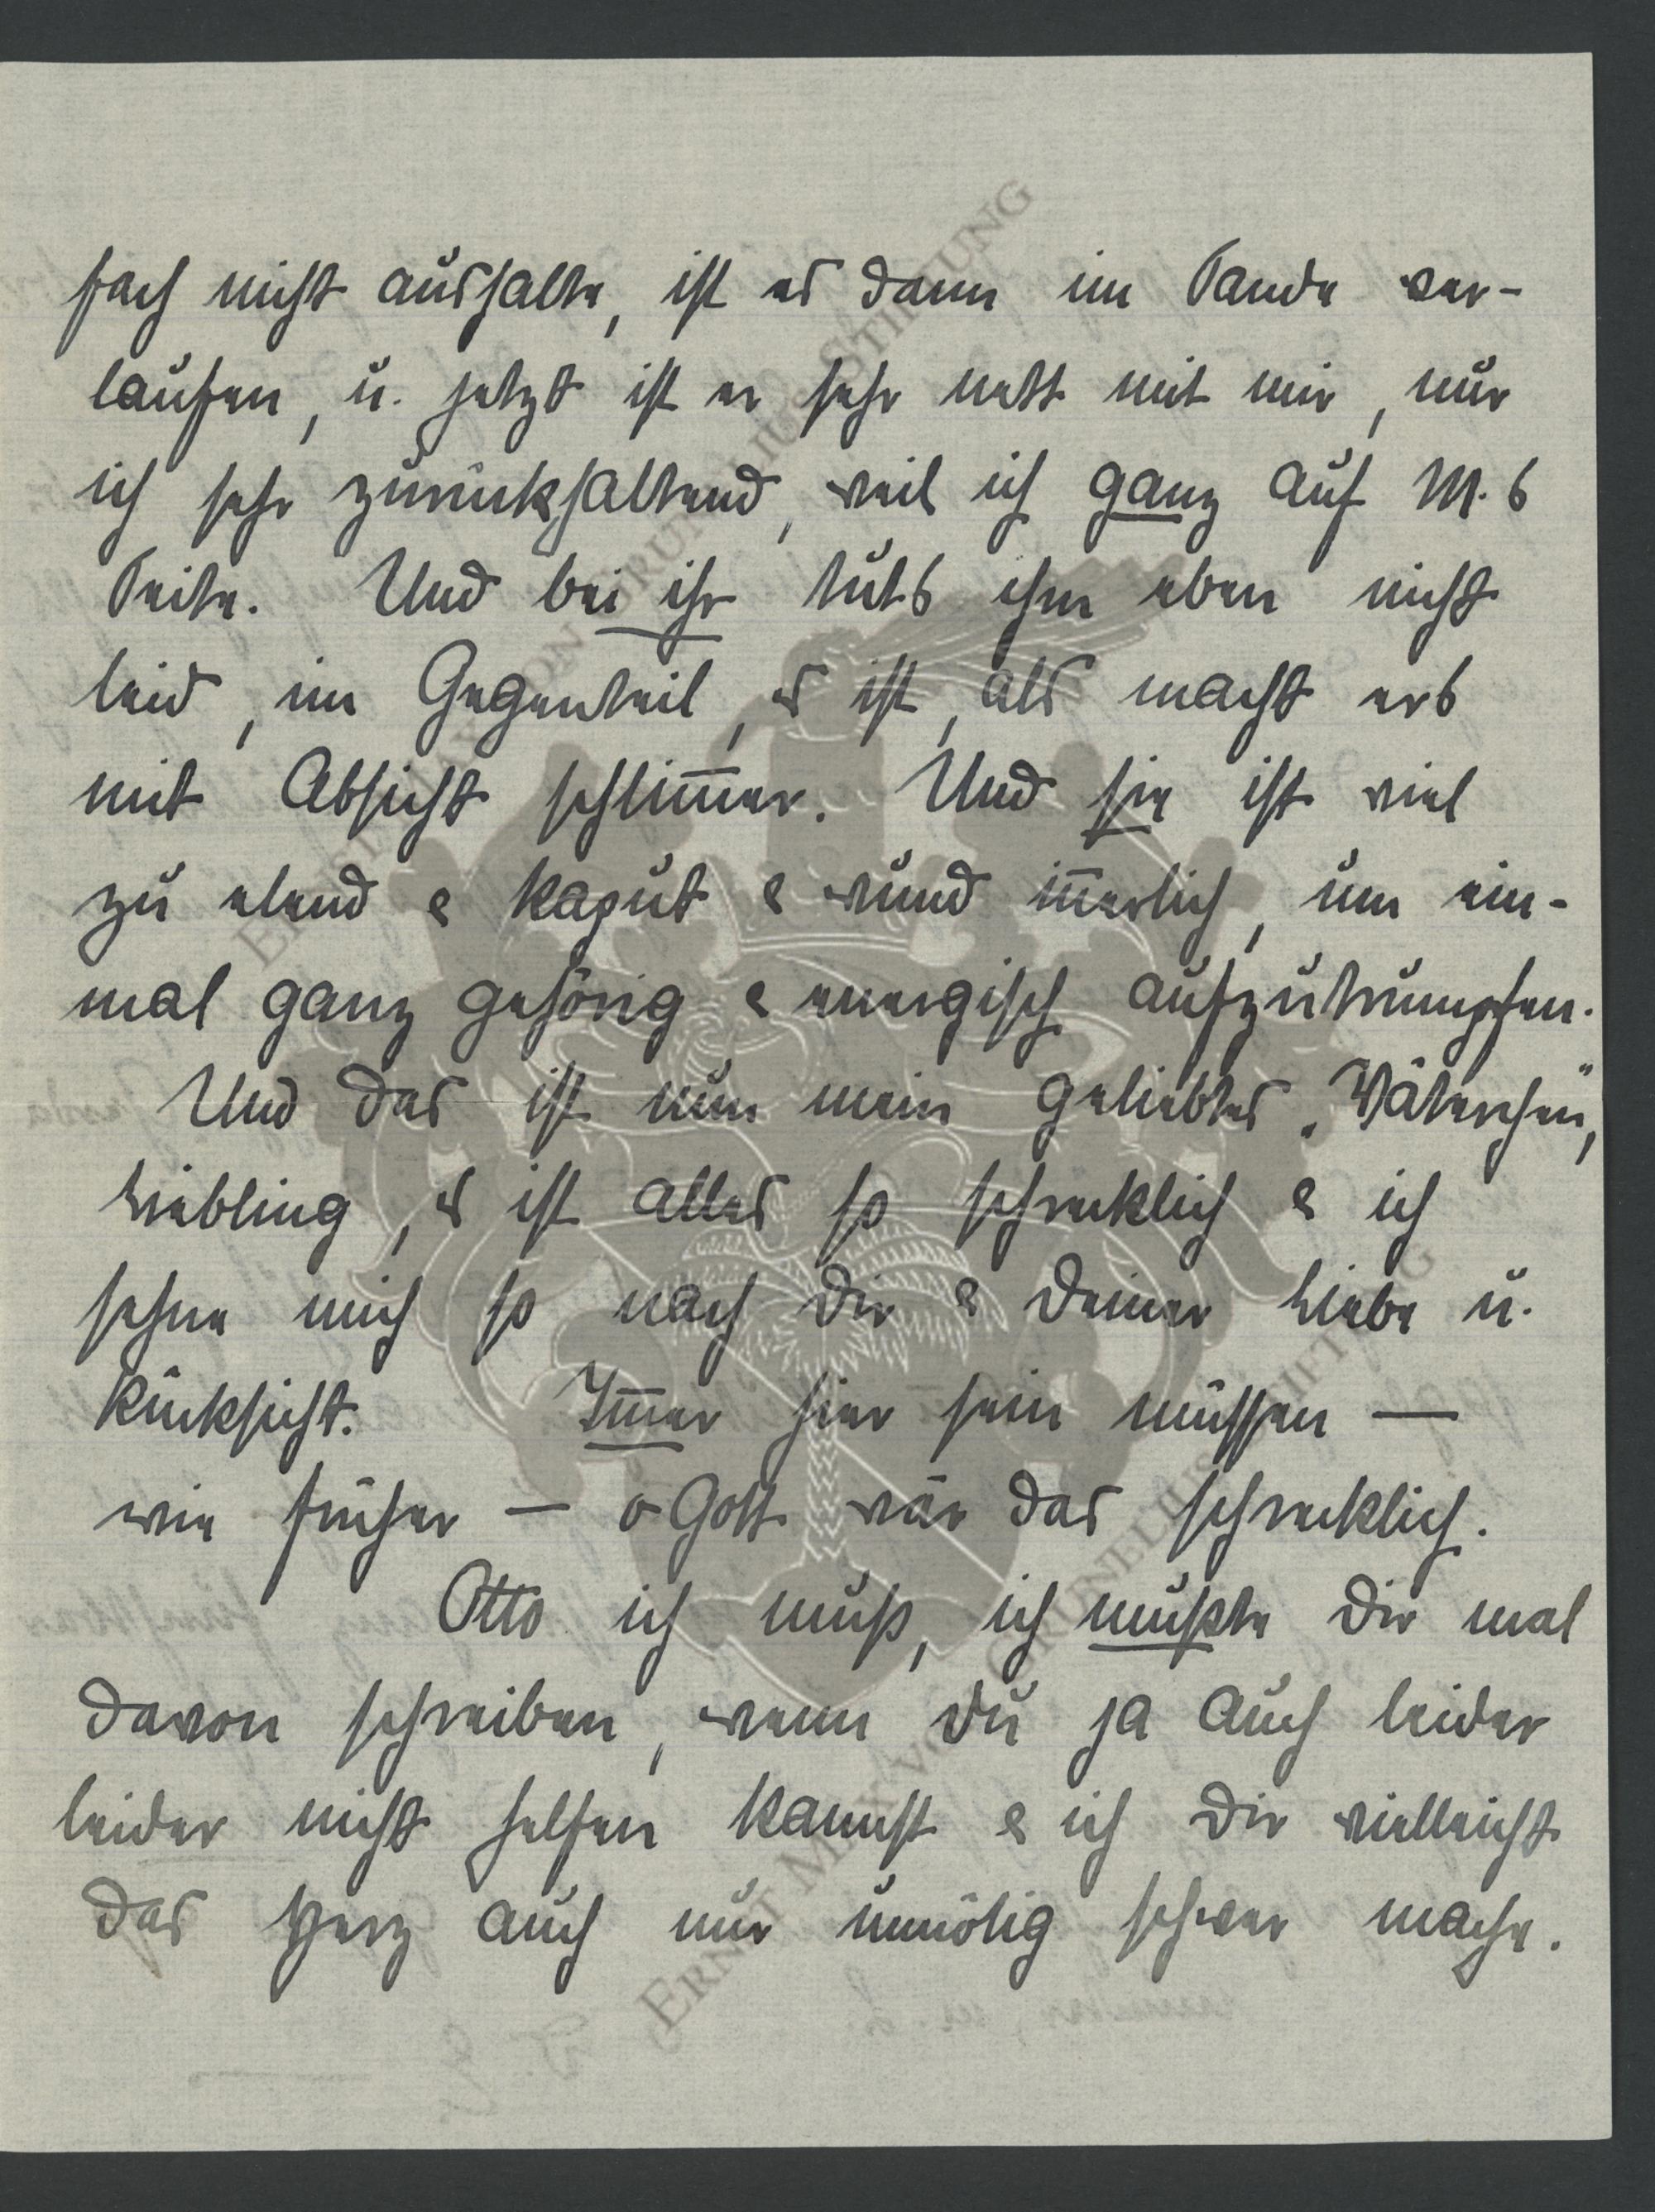 fach nicht aushalte, ist es dann im Sande ver-
laufen, u. jetzt ist er sehr nett mit mir, nur
ich sehr zurückhaltend, weil ich ganz auf M.s
Seite. Und bei ihr tuts ihm eben nicht
leid, im Gegenteil, es ist, als macht ers
mit Absicht schlim̅er. Und sie ist viel
zu elend & kaput & wund in̅erlich, um ein-
mal ganz gehörig & energisch aufzutrumpfen.
Und das ist nun mein geliebtes „Väterchen",
Liebling, es ist alles so schrecklich & ich
sehne mich so nach Dir & Deiner Liebe u.
Rücksicht. Im̅er hier sein müssen —
wie früher — o Gott wär das schrecklich.
Otto ich muß, ich mußte Dir mal
davon schreiben, wenn Du ja auch leider
leider nicht helfen kannst & ich Dir vielleicht
das Herz auch nur unnötig schwer mache.
ERNST MAX VON GRUNELIUS-STIFTUNG
ERNST MAX VON GRUNELIUS-STIFTUNG